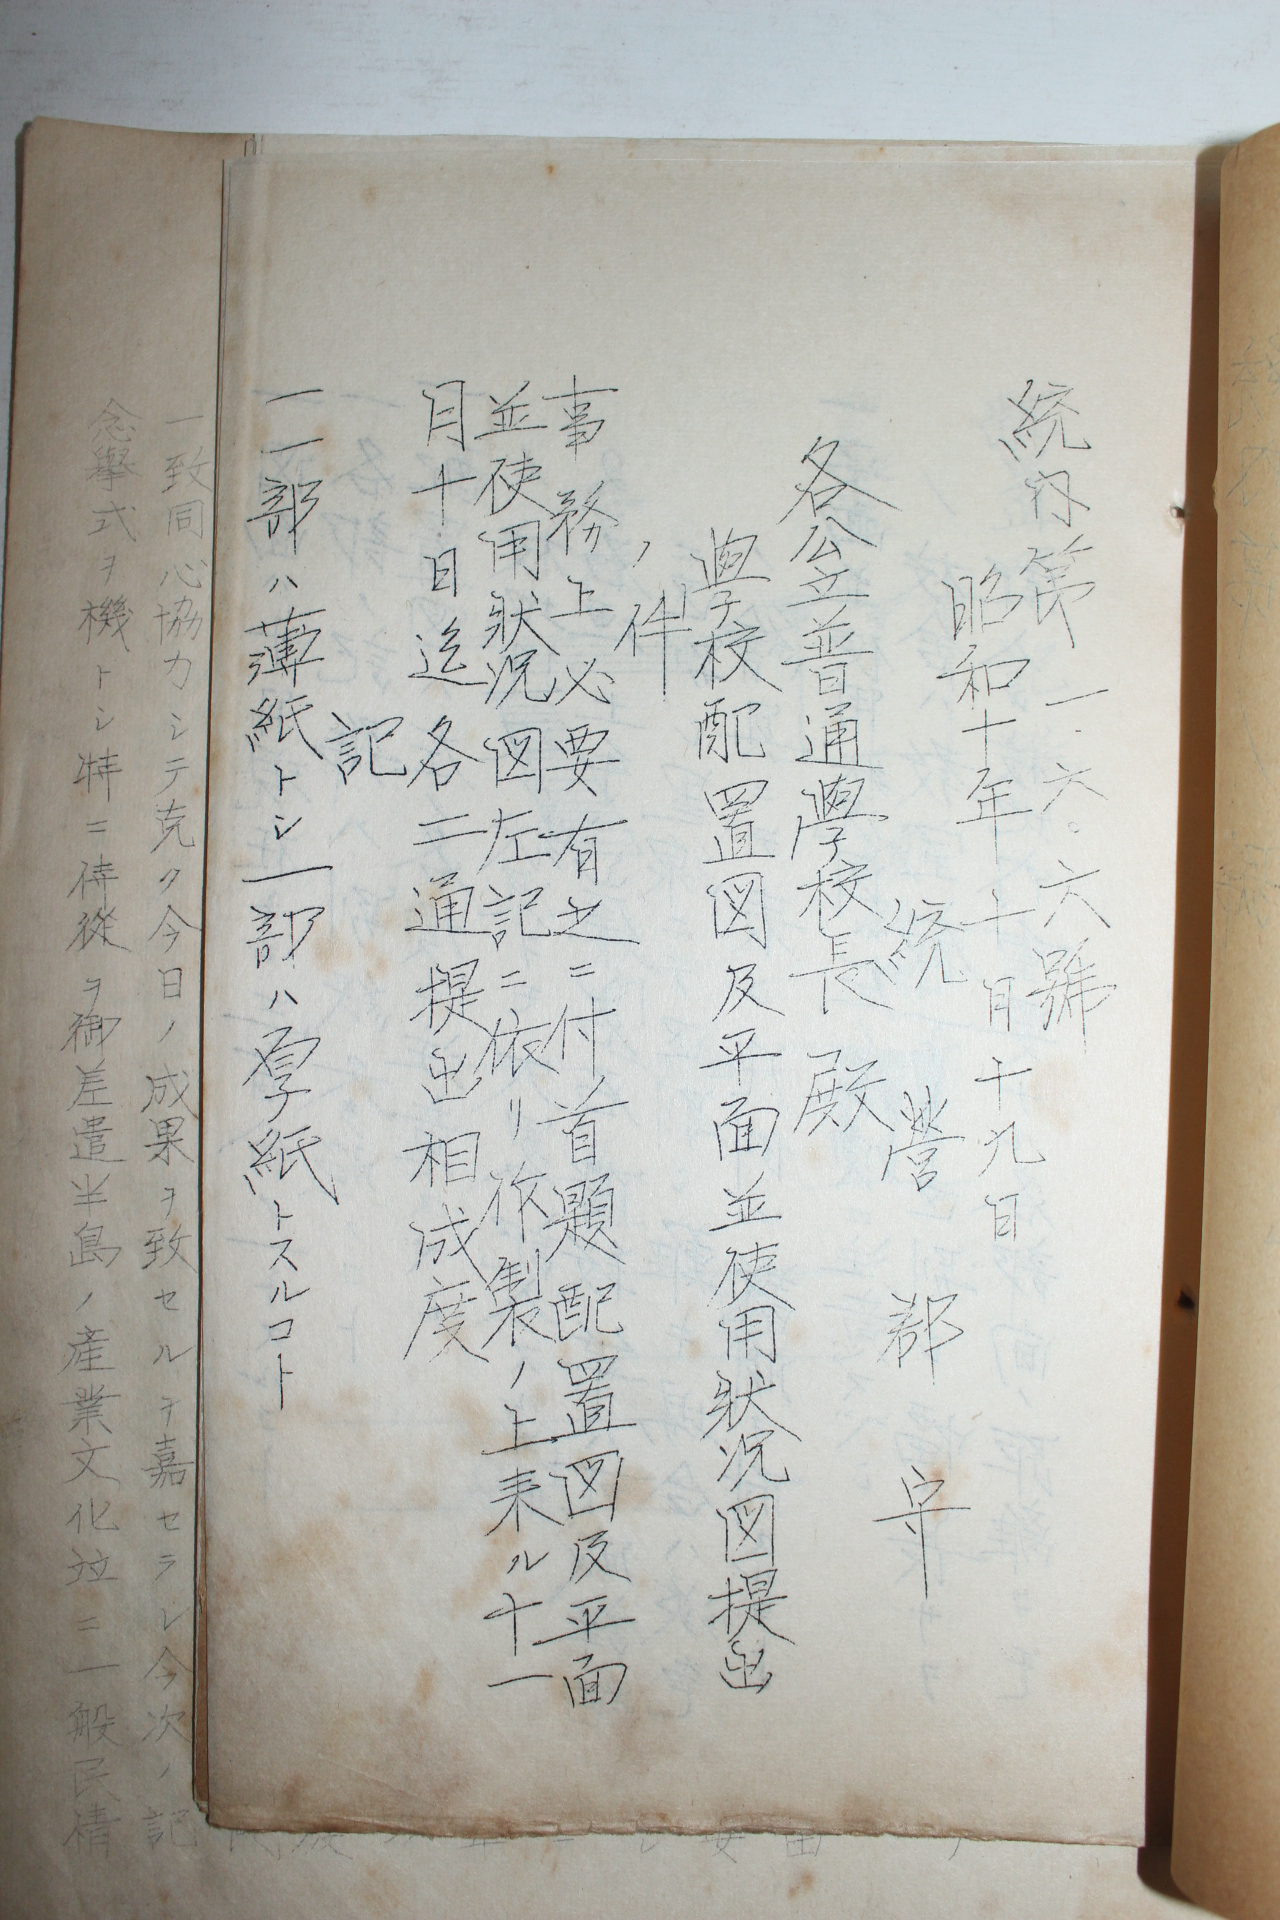 統内第一.六.六號
昭和十年十月十九日
統營郡守
各公立普通學校長殿
學校配置図及平面並使用狀況図提出
ノ件
事務上必要有之ニ付首題配置図及平面
並使用狀況図左記ニ依リ作製ノ上来ル十一
月十日迄各二通提出相成度
記
一一部ハ薄紙トシ一部ハ厚紙トスルコト
一致同心協力シテ克ク今日ノ成果ヲ致セルヲ嘉セラレ今次ノ記
念擧式ヲ機トシ特ニ侍從ヲ御差遣半島ノ産業文化竝ニ一般民情